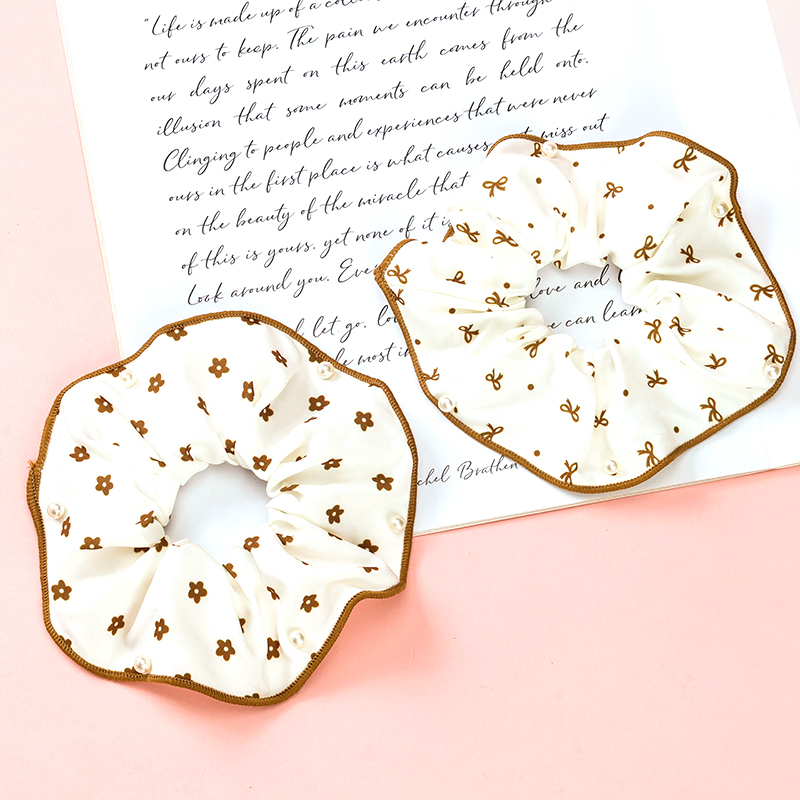 "Life is made up of a
not ours to keep. The pain we encounter through
our days spent on this earth comes from the
illusion that some moments can be held onto.
Clinging to people and experiences that were never
ours in the first place is what causes miss out
on the beauty of the miracle that
of this is yours, yet none of it
Look around you. love and
let go. we can learn
most
Brathen